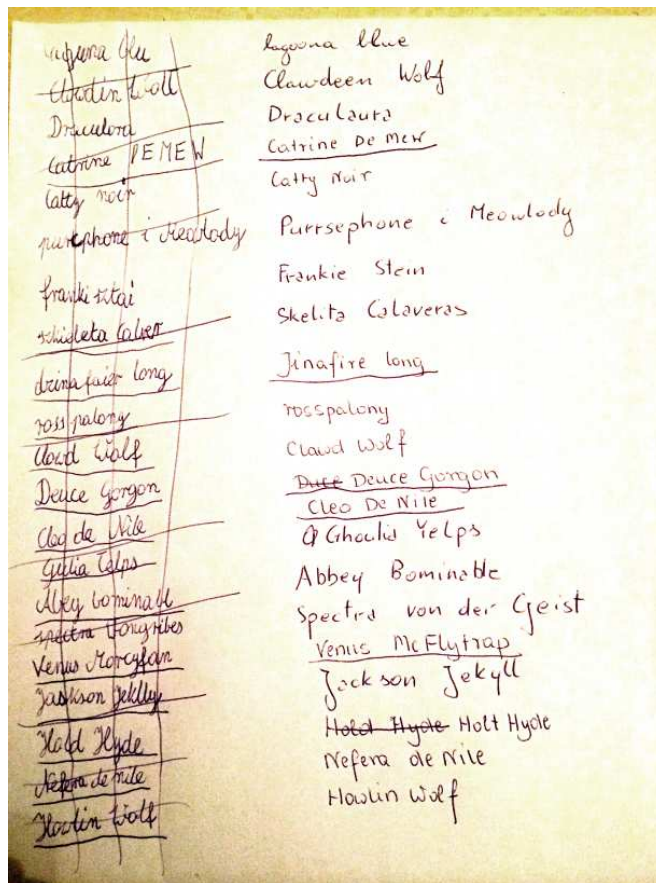 Laguna Glu
Clowdin Woll
Draculora
Catrine DEMEW
Catty noir
pursephone i Meowlody
franki sztai
szkieleta Calver
dzina faier long
ross palony
Clowd Wolf
Deuce Gorgon
Cleo de Nile
Gulia Celps
Abey bominall
spectra
Venus
Jaskson Jeklly
Hold Hyde
Nefera de nile
Howlin Wolf
lagoona blue
Clawdeen Wolf
Draculaura
Catrine De Mew
Catty Noir
Purrsephone i Meowlody
Frankie Stein
Skelita Calaveras
Jinafire long
rosspalony
Clawd Wolf
Duce Deuce Gorgon
Cleo De Nile
Ghoulia Yelps
Abbey Bominable
Spectra von der Geist
Venus McFlytrap
Jackson Jekyll
Hold Hyde Holt Hyde
Nefera de Nile
Howlin Wolf